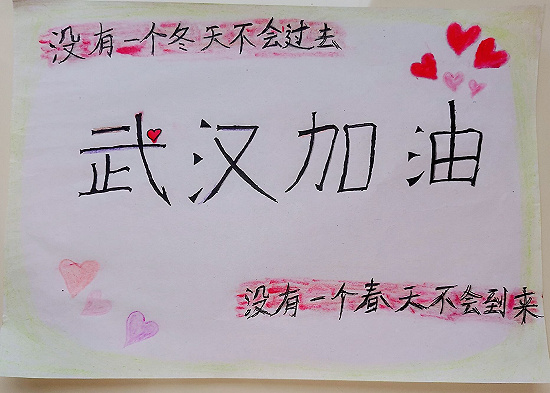 没有一个冬天不会过去
武汉加油
没有一个春天不会到来